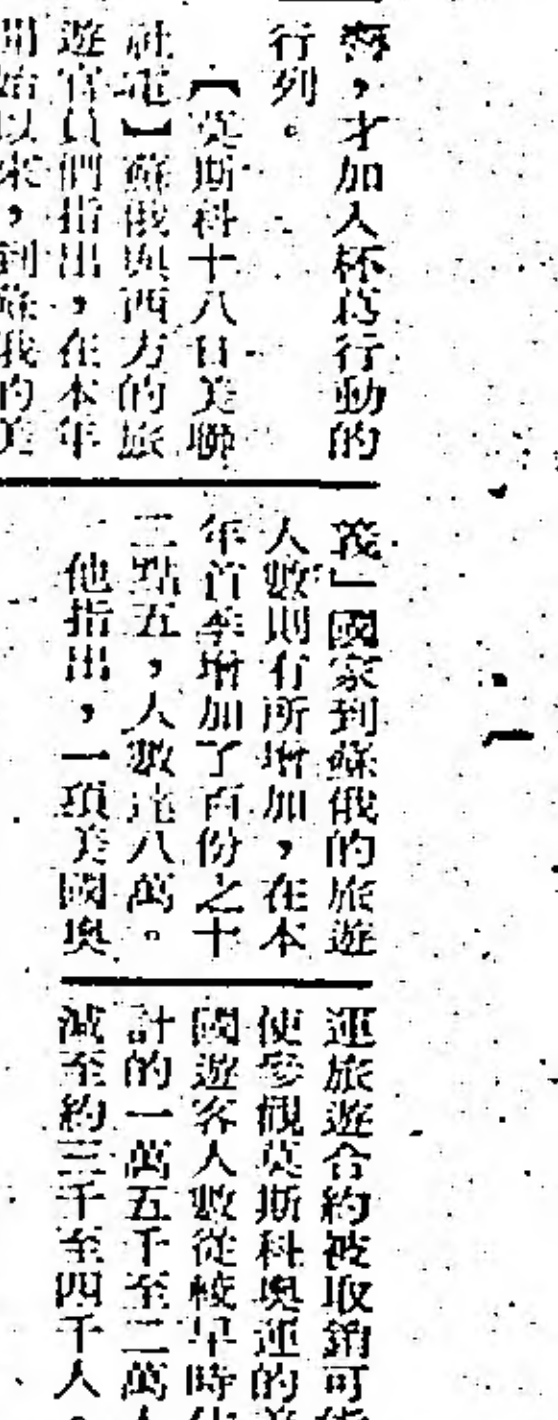 ，才加入杯葛行動的
行列。
【莫斯科十八日美聯
社電】蘇俄與西方的旅
遊官員們指出，在本年
開始以來，到蘇俄的美
義」國家到蘇俄的旅遊
人數則有所增加，在本
年首季增加了百份之十
三點五，人數達八萬。
他指出，一項美國奧
運旅遊合約被取銷可能
使參觀莫斯科奧運的美
國遊客人數從較早時估
計的一萬五千至二萬人
減至約三千至四千人。